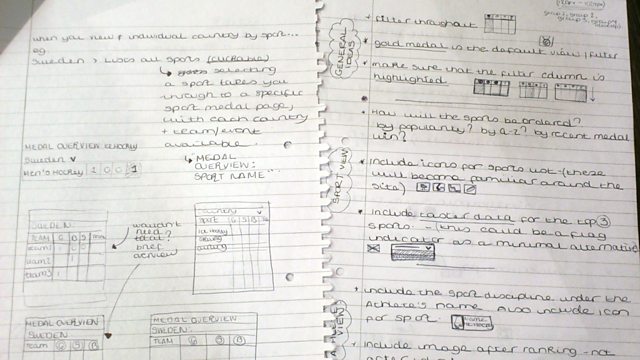 when you view an individual country by sport...
eg
Sweden > Lists all sports (CLICKABLE)
↳ selecting
a sport takes you
through to a specific
sport medal page,
with each country
+ team/event
available.
↳ MEDAL
OVERVIEW:
SPORT NAME...
MEDAL OVERVIEW
Sweden
Men's Hockey 2 0 0
SWEDEN:
TEAM G B S TOTAL
team1
team2
team3
wouldn't
need
total?
brief
overview
country
SPORT G S B
ice hockey
curling
MEDAL OVERVIEW
SWEDEN:
team G S B
MEDAL OVERVIEW
SWEDEN:
TEAM G S B
GENERAL
IDEAS
filter throughout
gold medal is the default view / filter
make sure that the filter column is
highlighted
How will the sports be ordered?
by popularity? by A-Z? by recent medal
win?
SPORT VIEW
include icons for sports list (these
will become familiar around the
site)
include data for the top 3
sports - (this could be a flag
indicator as a minimal alternative
include the sport discipline under the
Athlete's name. Also include icon
for sport
include image after ranking - not